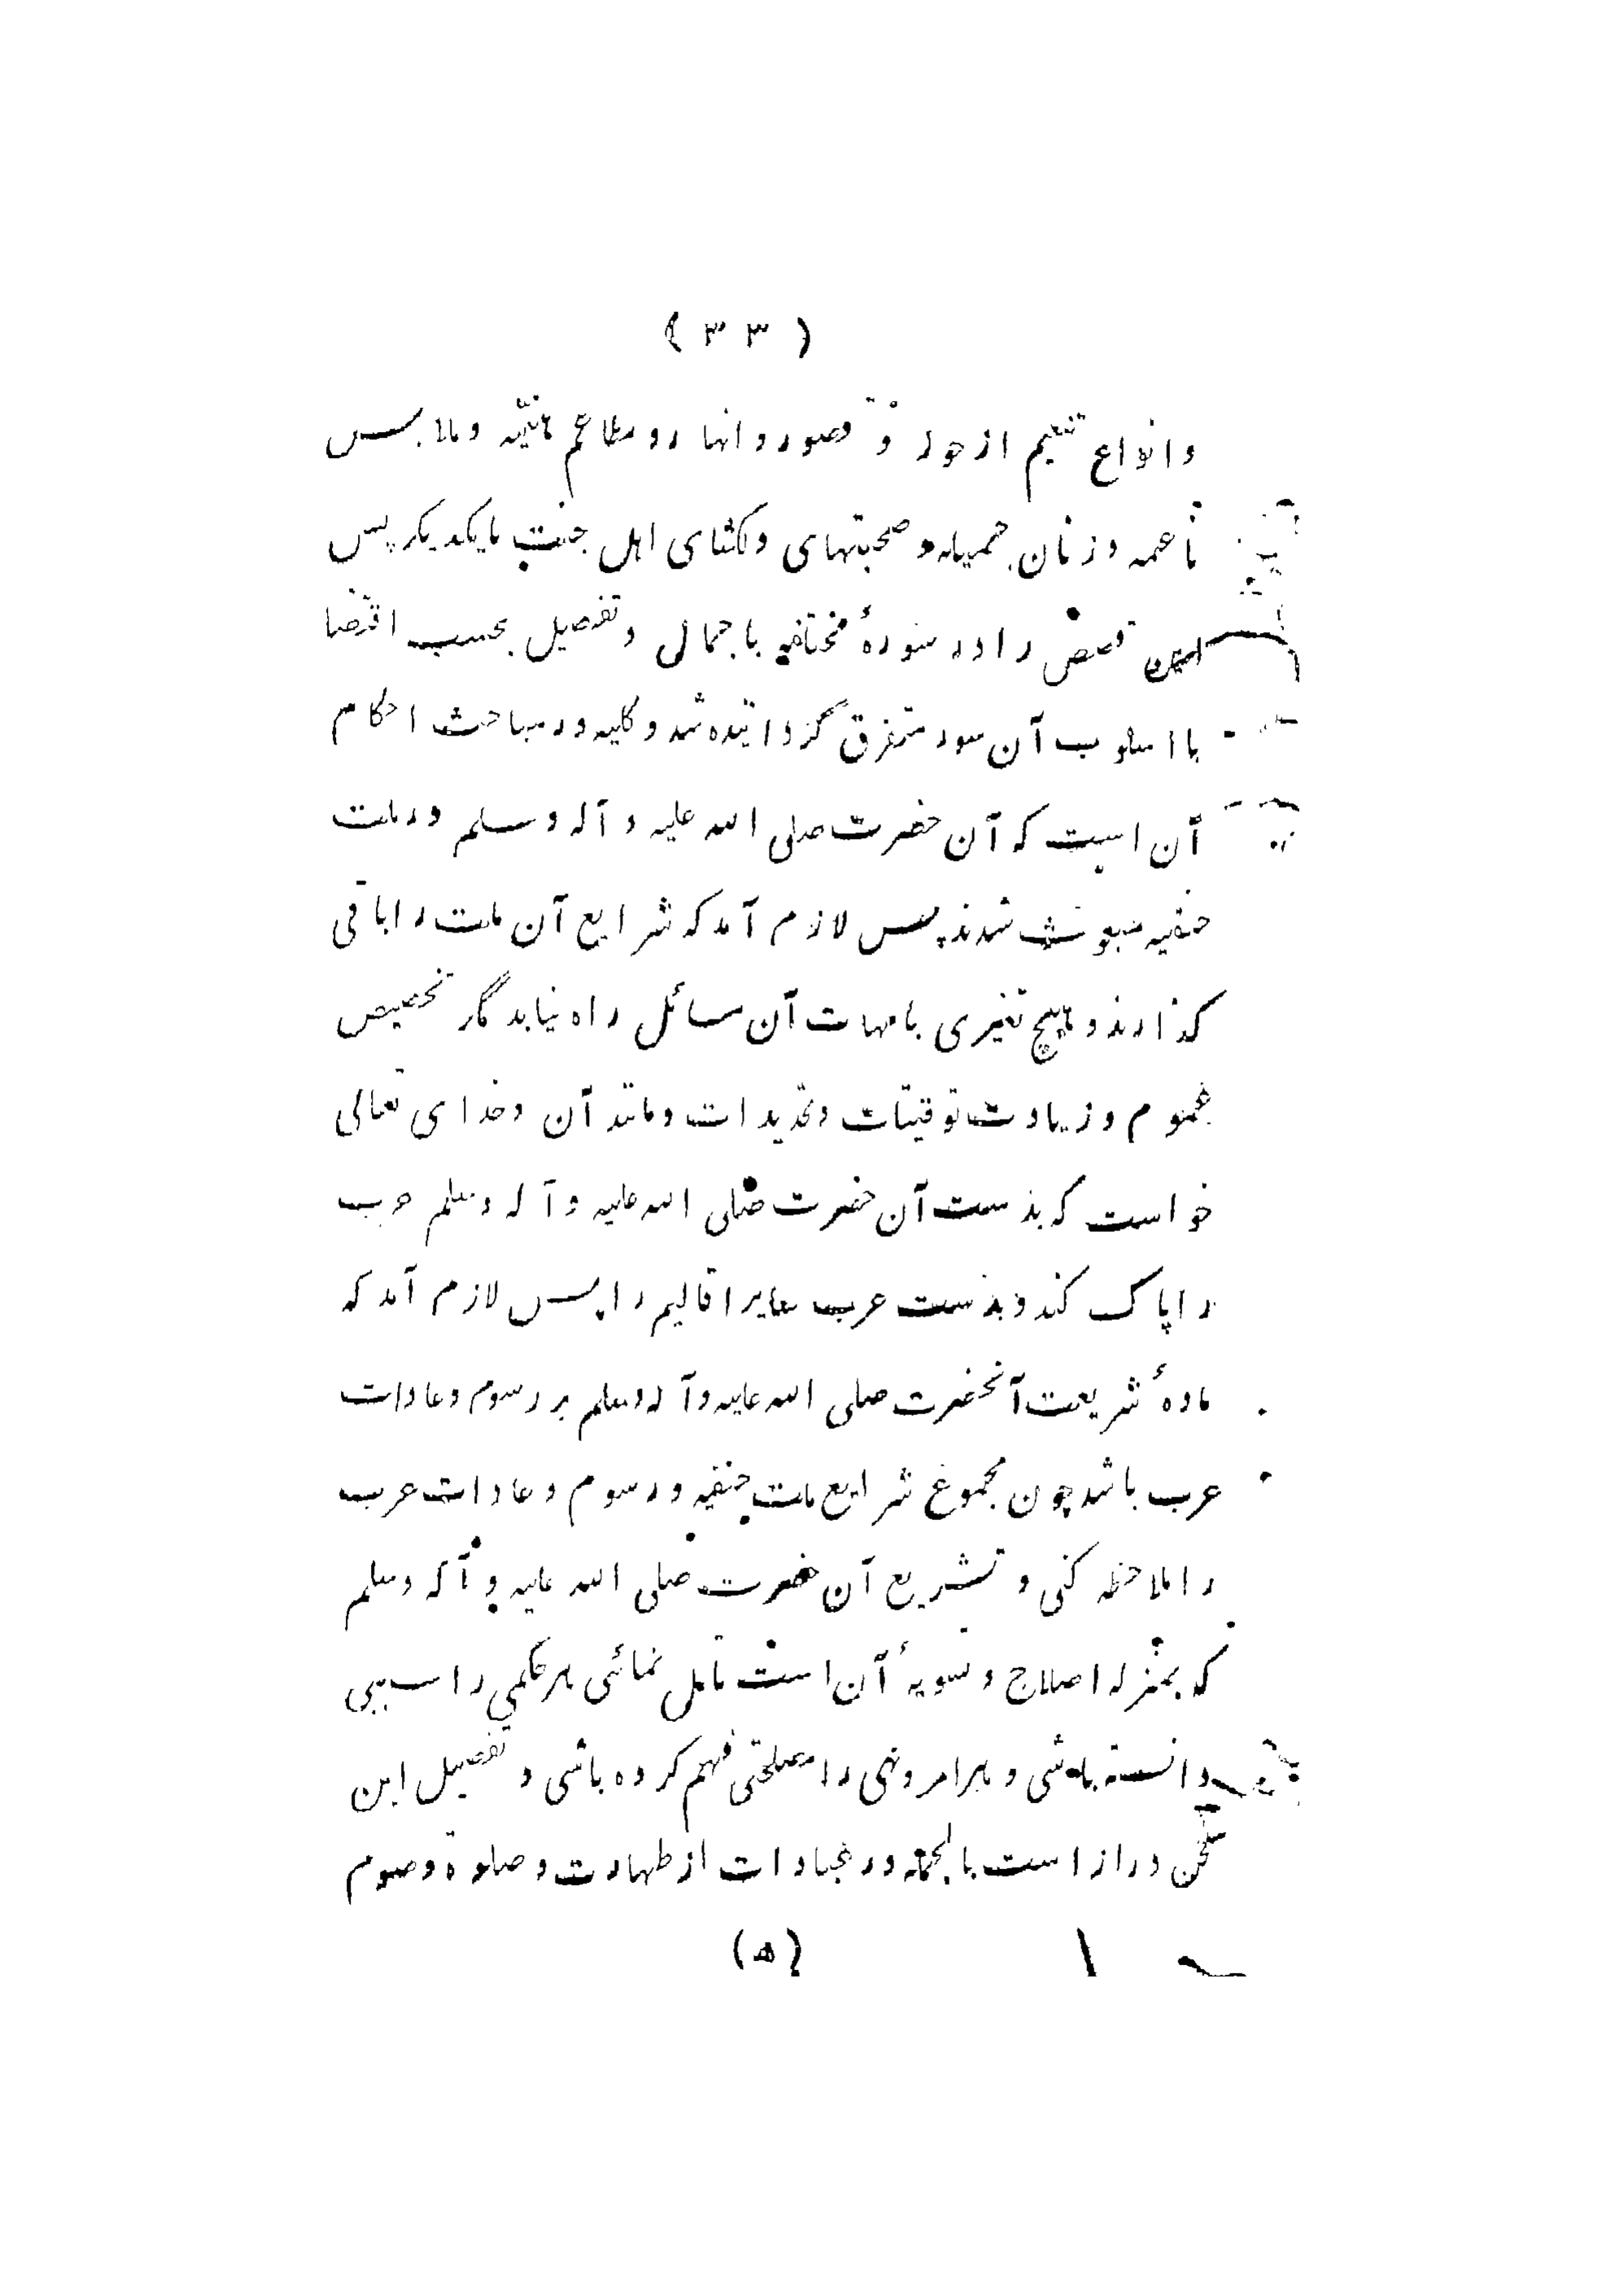 ( ۳۳ )
و انواع تنعیم از حور و قصور و انهار و مطاعم هنیّه و ملابس
ناعمه و زنان جمیله و صحبتهای دلکشای اهل جنت بایکدیگر پس
این قصص را در سورهٔ مختلفه باجمال و تفصیل بحسب اقتضا
با اسلوب آن سور متفرق گردانیده شد و کلیه در مباحث احکام
آن است که آن حضرت صلی الله علیه و آله و سلم در ملت
حنفیه مبعوث شدند پس لازم آمد که شرایع آن ملت را باقی
گذارند و هیچ تغیری بامهات آن مسائل راه نیابد مگر تخصیص
عموم و زیادت توقیتات و تحدیدات و مانند آن و خدای تعالی
خواست که بدست آن حضرت صلی الله علیه و آله و سلم عرب
را پاک کند و بدست عرب سایر اقالیم را پس لازم آمد که
مادهٔ شریعت آنحضرت صلی الله علیه و آله و سلم بر رسوم و عادات
عرب باشد چون مجموع شرایع ملت حنفیه و رسوم و عادات عرب
را ملاحظه کنی و تشریع آن حضرت صلی الله علیه و آله و سلم
که بمنزله اصلاح و تسویهٔ آن است تامل نمائی هر حکمی را سببی
دانسته باشی و هر امر و نهی را مصلحتی فهم کرده باشی و تفصیل این
سخن دراز است بالجمله در عبادات از طهارت و صلوة و صوم
(۵)